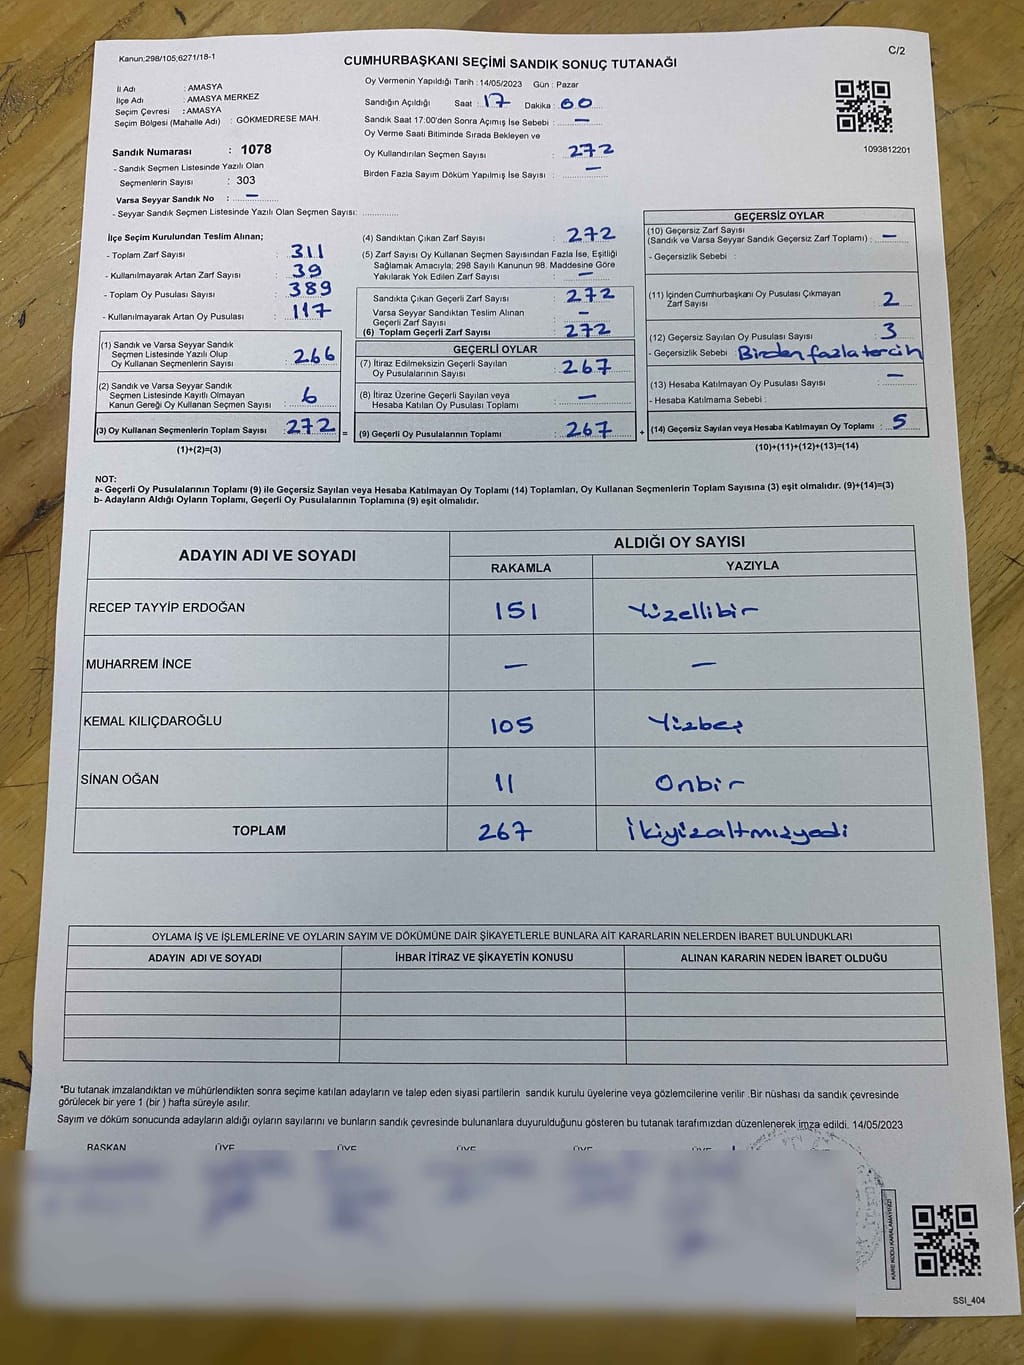 Kanun:298/105,6271/18-1
C/2
CUMHURBAŞKANI SEÇİMİ SANDIK SONUÇ TUTANAĞI
İl Adı : AMASYA
İlçe Adı : AMASYA MERKEZ
Seçim Çevresi : AMASYA
Seçim Bölgesi (Mahalle Adı) : GÖKMEDRESE MAH.
Oy Vermenin Yapıldığı Tarih : 14/05/2023 Gün : Pazar
Sandığın Açıldığı Saat : 17 Dakika : 00
Sandık Saat 17:00'den Sonra Açımış İse Sebebi : —
Oy Verme Saati Bitiminde Sırada Bekleyen ve
Oy Kullandırılan Seçmen Sayısı : 272
Birden Fazla Sayım Döküm Yapılmış İse Sayısı : —
1093812201
Sandık Numarası : 1078
- Sandık Seçmen Listesinde Yazılı Olan
Seçmenlerin Sayısı : 303
Varsa Seyyar Sandık No : —
- Seyyar Sandık Seçmen Listesinde Yazılı Olan Seçmen Sayısı:
İlçe Seçim Kurulundan Teslim Alınan;
- Toplam Zarf Sayısı : 311
- Kullanılmayarak Artan Zarf Sayısı : 39
- Toplam Oy Pusulası Sayısı : 389
- Kullanılmayarak Artan Oy Pusulası : 117
(1) Sandık ve Varsa Seyyar Sandık
Seçmen Listesinde Yazılı Olup
Oy Kullanan Seçmenlerin Sayısı : 266
(2) Sandık ve Varsa Seyyar Sandık
Seçmen Listesinde Kayıtlı Olmayan
Kanun Gereği Oy Kullanan Seçmen Sayısı : 6
(3) Oy Kullanan Seçmenlerin Toplam Sayısı : 272 =
(1)+(2)=(3)
(4) Sandıktan Çıkan Zarf Sayısı : 272
(5) Zarf Sayısı Oy Kullanan Seçmen Sayısından Fazla İse, Eşitliği
Sağlamak Amacıyla; 298 Sayılı Kanunun 98. Maddesine Göre
Yakılarak Yok Edilen Zarf Sayısı : —
Sandıkta Çıkan Geçerli Zarf Sayısı : 272
Varsa Seyyar Sandıktan Teslim Alınan
Geçerli Zarf Sayısı : —
(6) Toplam Geçerli Zarf Sayısı : 272
GEÇERLİ OYLAR
(7) İtiraz Edilmeksizin Geçerli Sayılan
Oy Pusulalarının Sayısı : 267
(8) İtiraz Üzerine Geçerli Sayılan veya
Hesaba Katılan Oy Pusulası Toplamı : —
(9) Geçerli Oy Pusulalarının Toplamı : 267 +
GEÇERSİZ OYLAR
(10) Geçersiz Zarf Sayısı
(Sandık ve Varsa Seyyar Sandık Geçersiz Zarf Toplamı) : —
- Geçersizlik Sebebi :
(11) İçinden Cumhurbaşkanı Oy Pusulası Çıkmayan
Zarf Sayısı : 2
(12) Geçersiz Sayılan Oy Pusulası Sayısı : 3
- Geçersizlik Sebebi : Birden fazla tercih
(13) Hesaba Katılmayan Oy Pusulası Sayısı : —
- Hesaba Katılmama Sebebi :
(14) Geçersiz Sayılan veya Hesaba Katılmayan Oy Toplamı : 5
(10)+(11)+(12)+(13)=(14)
NOT:
a- Geçerli Oy Pusulalarının Toplamı (9) ile Geçersiz Sayılan veya Hesaba Katılmayan Oy Toplamı (14) Toplamları, Oy Kullanan Seçmenlerin Toplam Sayısına (3) eşit olmalıdır. (9)+(14)=(3)
b- Adayların Aldığı Oyların Toplamı, Geçerli Oy Pusulalarının Toplamına (9) eşit olmalıdır.
ADAYIN ADI VE SOYADI ALDIĞI OY SAYISI
RAKAMLA YAZIYLA
RECEP TAYYİP ERDOĞAN 151 Yüzellibir
MUHARREM İNCE — —
KEMAL KILIÇDAROĞLU 105 Yüzbeş
SİNAN OĞAN 11 Onbir
TOPLAM 267 İkiyüzaltmışyedi
OYLAMA İŞ VE İŞLEMLERİNE VE OYLARIN SAYIM VE DÖKÜMÜNE DAİR ŞİKAYETLERLE BUNLARA AİT KARARLARIN NELERDEN İBARET BULUNDUKLARI
ADAYIN ADI VE SOYADI İHBAR İTİRAZ VE ŞİKAYETİN KONUSU ALINAN KARARIN NEDEN İBARET OLDUĞU
*Bu tutanak imzalandıktan ve mühürlendikten sonra seçime katılan adayların ve talep eden siyasi partilerin sandık kurulu üyelerine veya gözlemcilerine verilir .Bir nüshası da sandık çevresinde
görülecek bir yere 1 (bir ) hafta süreyle asılır.
Sayım ve döküm sonucunda adayların aldığı oyların sayılarını ve bunların sandık çevresinde bulunanlara duyurulduğunu gösteren bu tutanak tarafımızdan düzenlenerek imza edildi. 14/05/2023
BAŞKAN ÜYE ÜYE ÜYE ÜYE ÜYE
KARE KODU KARALAMAYINIZ!
SSI_404